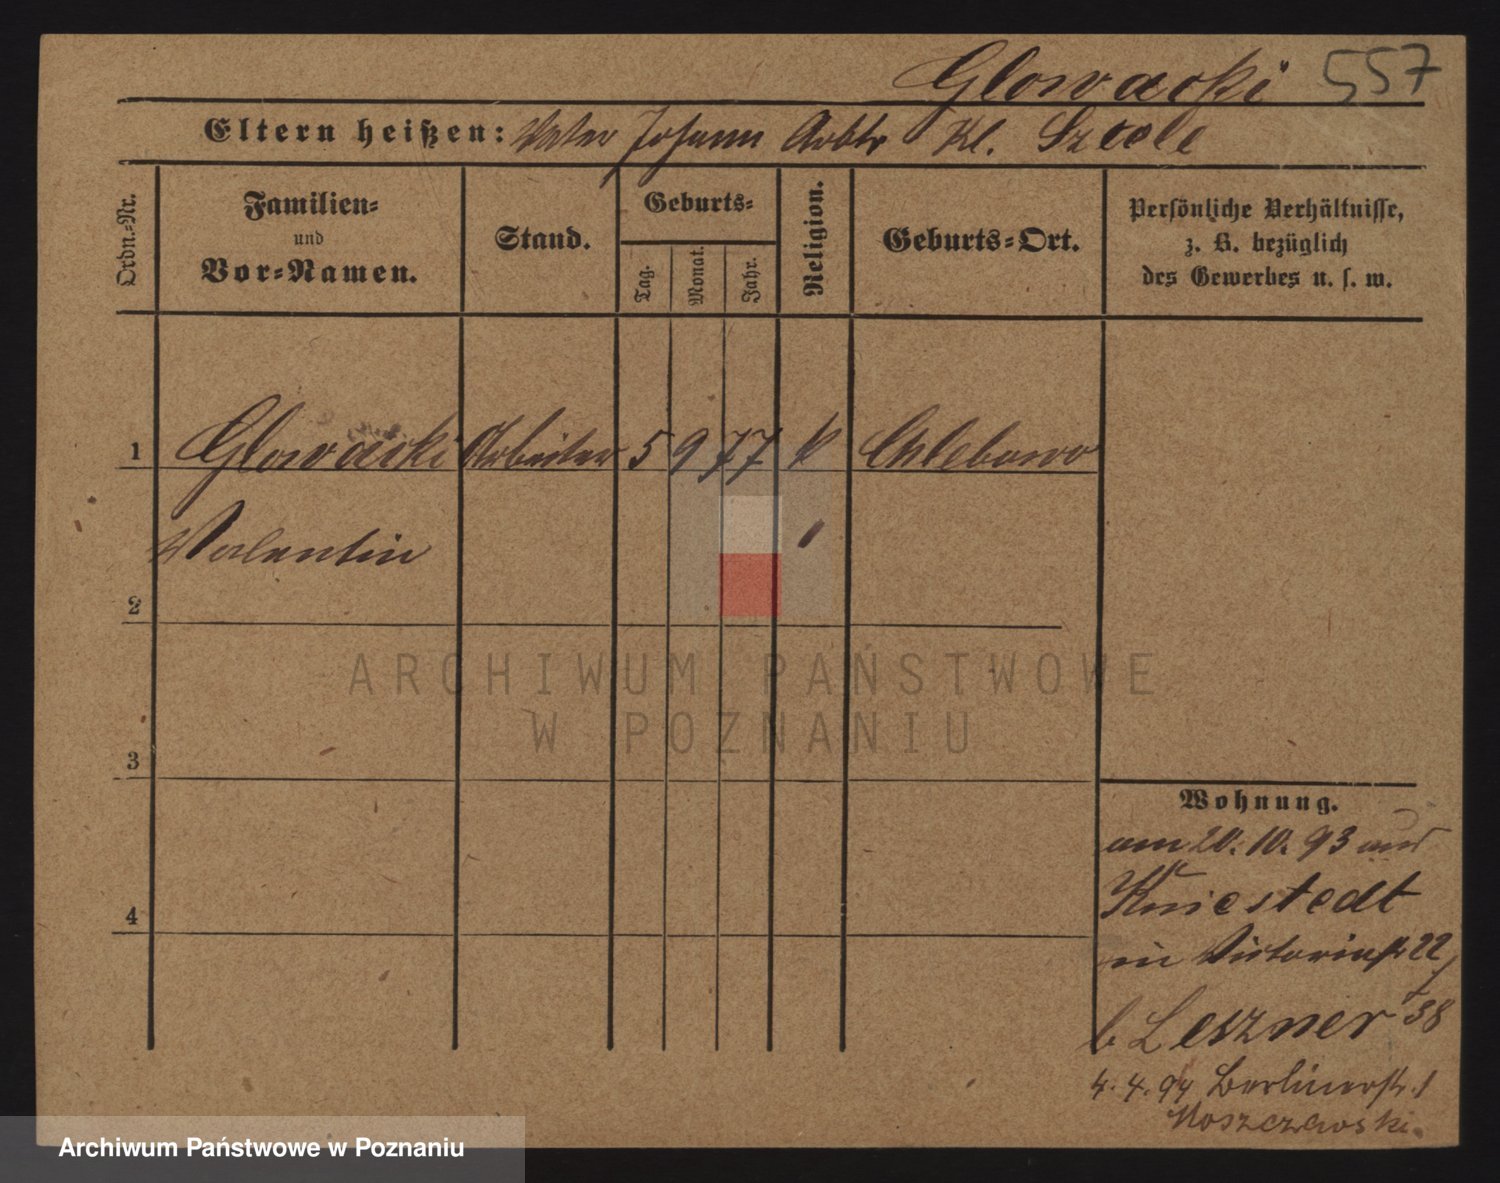 Glowacki 557
Eltern heißen: Vater Johann Arbtr Kl.
Ordn.-Nr.
Familien-
und
Vor-Namen.
Stand.
Geburts-
Tag.
Monat.
Jahr.
Religion.
Geburts-Ort.
Persönliche Verhältnisse,
z. B. bezüglich
des Gewerbes u. s. w.
1 Glowacki Arbeiter 5 9 77 k Chlebowo
Valentin
2
3
4
Wohnung.
am 20. 10. 93 aus
Kniestedt
in Victoriastr 22
b Leszner 38
4. 4. 94 Berlinerstr. 1
Moszczewski.
ARCHIWUM PAŃSTWOWE
W POZNANIU
Archiwum Państwowe w Poznaniu